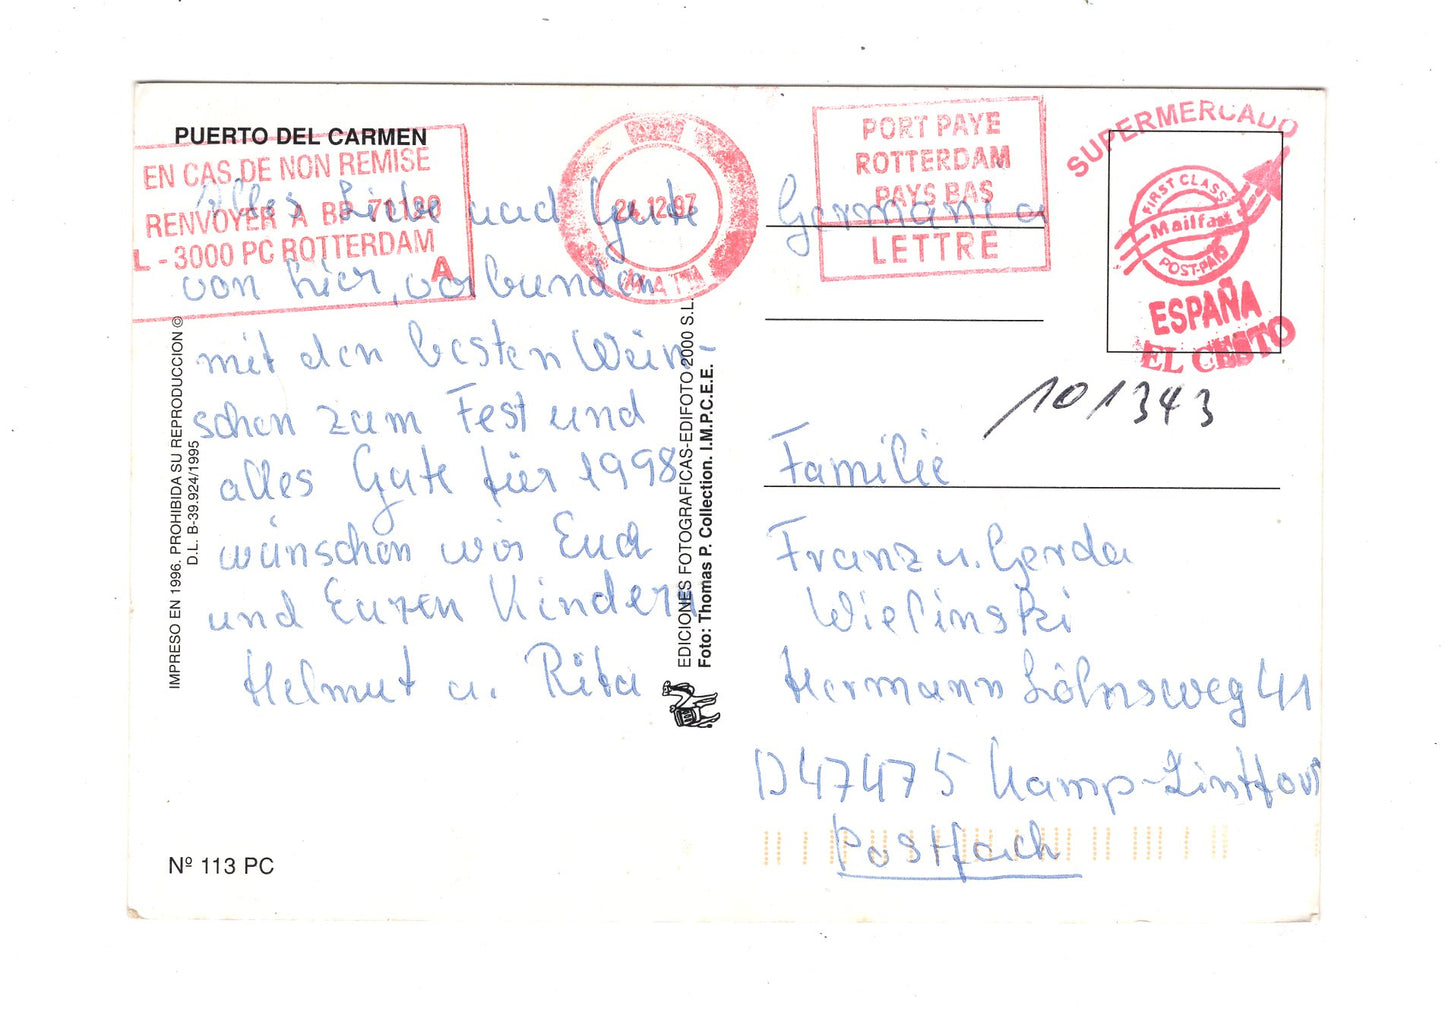 PUERTO DEL CARMEN
EN CAS DE NON REMISE
RENVOYER A BP 71180
L - 3000 PC ROTTERDAM
A
24.12.97
PORT PAYE
ROTTERDAM
PAYS BAS
LETTRE
SUPERMERCADO
FIRST CLASS
Mailfast
POST-PAID
ESPAÑA
EL CESTO
Alles Liebe und Gute
von hier, verbunden
mit den besten Wün-
schen zum Fest und
alles Gute für 1998
wünschen wir Euch
und Euren Kindern
Helmut u. Rita
Germania
101343
Familie
Franz u. Gerda
Wielinski
Hermann Lönsweg 41
D 47475 Kamp-Lintfort
Postfach
IMPRESO EN 1996. PROHIBIDA SU REPRODUCCION ©
D.L. B-39.924/1995
EDICIONES FOTOGRAFICAS-EDIFOTO 2000 S.L.
Foto: Thomas P. Collection. I.M.P.C.E.E.
Nº 113 PC